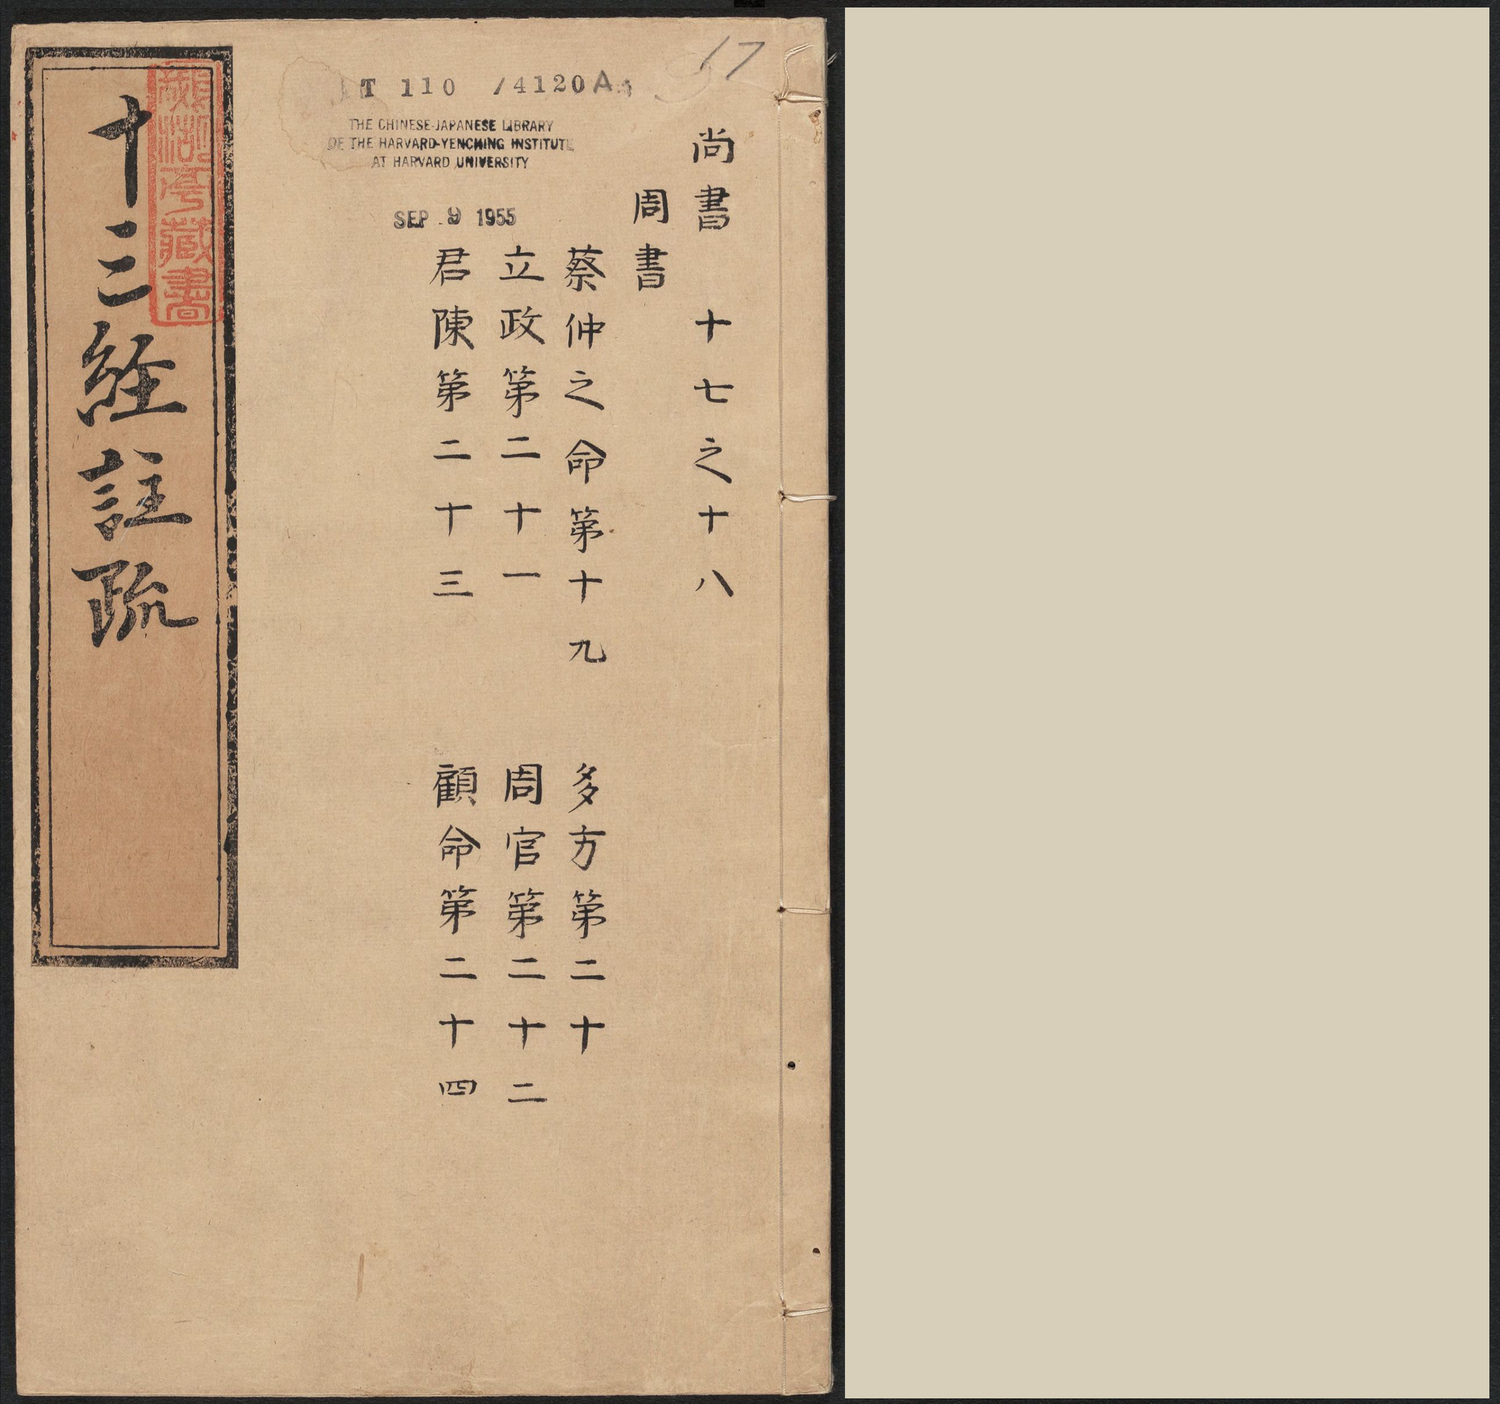 尚書 十七之十八
周書
蔡仲之命第十九 多方第二十
立政第二十一 周官第二十二
君陳第二十三 顧命第二十四
T 110 /4120A
THE CHINESE-JAPANESE LIBRARY
OF THE HARVARD-YENCHING INSTITUTE
AT HARVARD UNIVERSITY
SEP 9 1955
十三経註疏
亭藏書